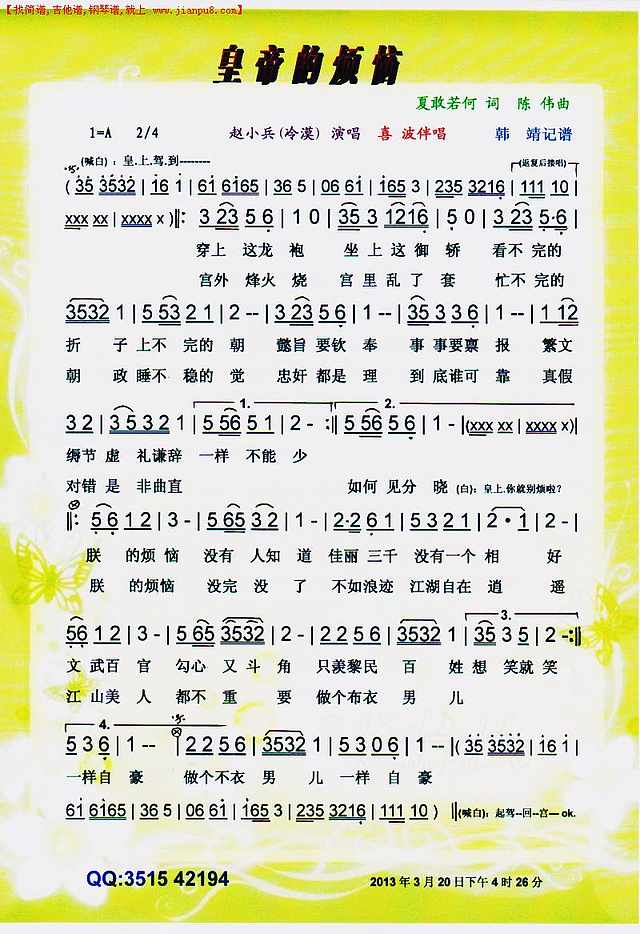 【找简谱,吉他谱,钢琴谱,就上 www.jianpu8.com】
皇帝的烦恼
夏敢若何 词 陈 伟曲
1=A 2/4 赵小兵(冷漠) 演唱 喜 波伴唱 韩 靖记谱
(喊白)：皇.上.驾.到-------- (返复后接唱)
( 35 3532 | 16 1 | 61 6165 | 36 5 | 06 61 | 165 3 | 235 3216 | 111 10 |
xxx xx | xxxx x )‖: 3 23 5 6 | 1 0 | 35 3 1216 | 5 0 | 3 23 5·6 |
穿上 这龙 袍 坐 上 这 御 轿 看不 完的
宫外 烽火 烧 宫 里 乱 了 套 忙不 完的
3532 1 | 5 53 2 1 | 2 -- | 3 23 5 6 | 1 -- | 35 3 3 6 | 1 -- | 1 12
折 子 上不 完的 朝 懿旨 要钦 奉 事 事要禀 报 繁文
朝 政睡不 稳的 觉 忠奸 都是 理 到 底谁可 靠 真假
1. 2.
3 2 | 3 5 3 2 1 | 5 56 5 1 | 2 - :‖ 5 56 5 6 | 1 - |(xxx xx | xxxx x)|
缛节 虚 礼谦辞 一样 不能 少
对错 是 非曲直 如何 见分 晓 (白)：皇上.你就别烦啦?
‖: 5 6 1 2 | 3 - | 5 65 3 2 | 1 - | 2·2 6 1 | 5 3 2 1 | 2 · 1 | 2 - |
朕 的烦 恼 没有 人知 道 佳丽 三千 没有一个 相 好
朕 的烦恼 没完 没 了 不如浪迹 江湖自在 逍 遥
3.
56 1 2 | 3 - | 5 65 3532 | 2 - | 2 2 5 6 | 3532 1 | 35 3 5 | 2 -:‖
文 武百 官 勾心 又 斗 角 只羡黎民 百 姓 想 笑就 笑
江 山美 人 都不 重 要 做个布衣 男 儿
4.
5 3 6 | 1 -- | 2 2 5 6 | 3532 1 | 5 3 0 6 | 1 -- |( 35 3532 | 16 1 |
一样自 豪 做个不衣 男 儿 一样 自 豪
61 6165 | 36 5 | 06 61 | 165 3 | 235 3216 | 111 10 ) ‖(喊白)：起驾--回--宫— ok.
QQ:3515 42194
2013 年 3 月 20 日下午 4 时 26 分